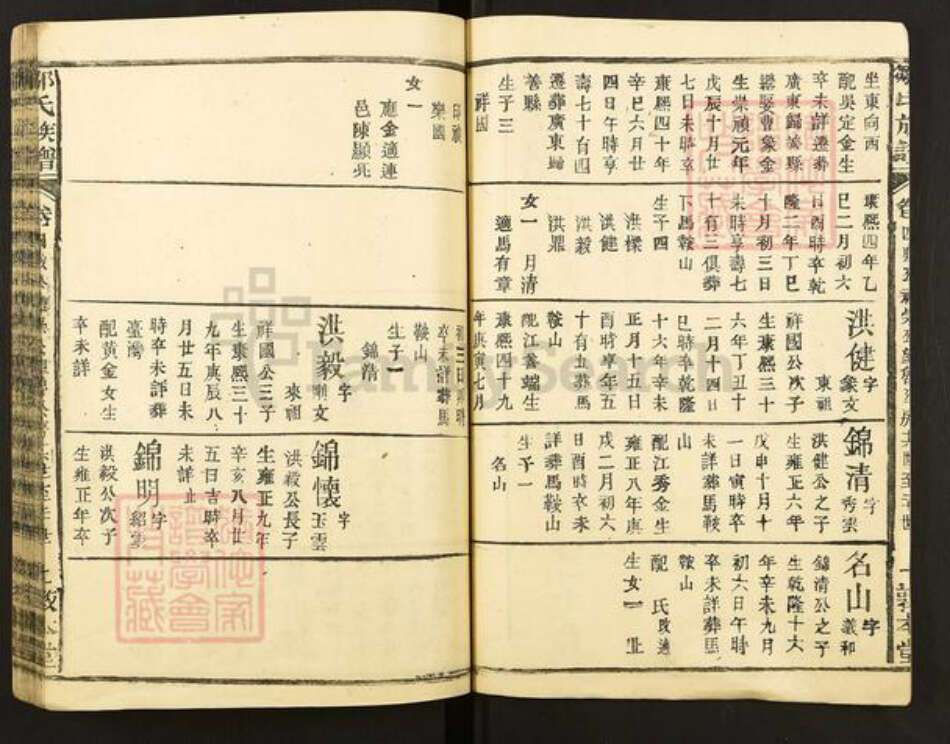 坐東向西
配吳定金生
卒未詳遷葬
廣東歸善縣
繼娶曹象金
生崇禎元年
戊辰十月廿
七日未時卒
康熙四十年
辛巳六月廿
四日午時享
壽七十有四
遷葬廣東歸
善縣
生子三
祥國
康熙四年乙
巳二月初六
日酉時卒乾
隆二年丁巳
十月初三日
未時享壽七
十有三俱葬
下馬鞍山
生子四
洪樑
洪健
洪毅
洪鼎
女一 月清
適馬有章
洪健字象文
東祖
祥國公次子
生康熙三十
六年丁丑十
二月十四日
巳時卒乾隆
十六年辛未
正月十五日
酉時享年五
十有五葬馬
鞍山
配江養端生
康熙四十九
年庚寅七月
錦清字秀寰
洪健公之子
生雍正六年
戊申十月十
一日寅時卒
未詳葬馬鞍
山
配江秀金生
雍正八年庚
戌二月初六
日酉時卒未
詳葬馬鞍山
生子一
名山
名山字義和
錦清公之子
生乾隆十六
年辛未九月
初六日午時
卒未詳葬馬
鞍山
配 氏改適
生女一 止
樂國
女一
應金適連
邑陳顯兆
卒未詳葬馬
鞍山
生子一
錦清
洪毅字剛文
來祖
祥國公三子
生康熙三十
九年庚辰八
月廿五日未
時卒未詳葬
臺灣
配黃金女生
卒未詳
錦懷字玉雲
洪毅公長子
生雍正九年
辛亥八月廿
五日吉時卒
未詳止
錦明字紹雲
洪毅公次子
生雍正年卒
氏族譜
FamilySearch